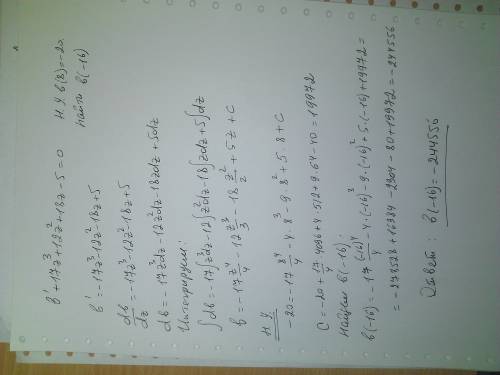 b' + 17z³ + 12z² + 18z - 5 = 0    Н.У. b(8) = -20
найти b(-16)
b' = -17z³ - 12z² - 18z + 5
db/dz = -17z³ - 12z² - 18z + 5
db = -17z³dz - 12z²dz - 18zdz + 5dz
Интегрируем:
∫db = -17∫z³dz - 12∫z²dz - 18∫zdz + 5∫dz
b = -17 z⁴/4 - 12 z³/3 - 18 z²/2 + 5z + C
Н.У.
-20 = -17 8⁴/4 - 4·8³ - 9·8² + 5·8 + C
C = -20 + 17/4·4096 + 4·512 + 9·64 - 40 = 19972
Найдем b(-16):
b(-16) = -17 (-16)⁴/4 - 4·(-16)³ - 9·(-16)² + 5·(-16) + 19972 =
= -278528 + 16384 - 2304 - 80 + 19972 = -244556
Ответ: b(-16) = -244556